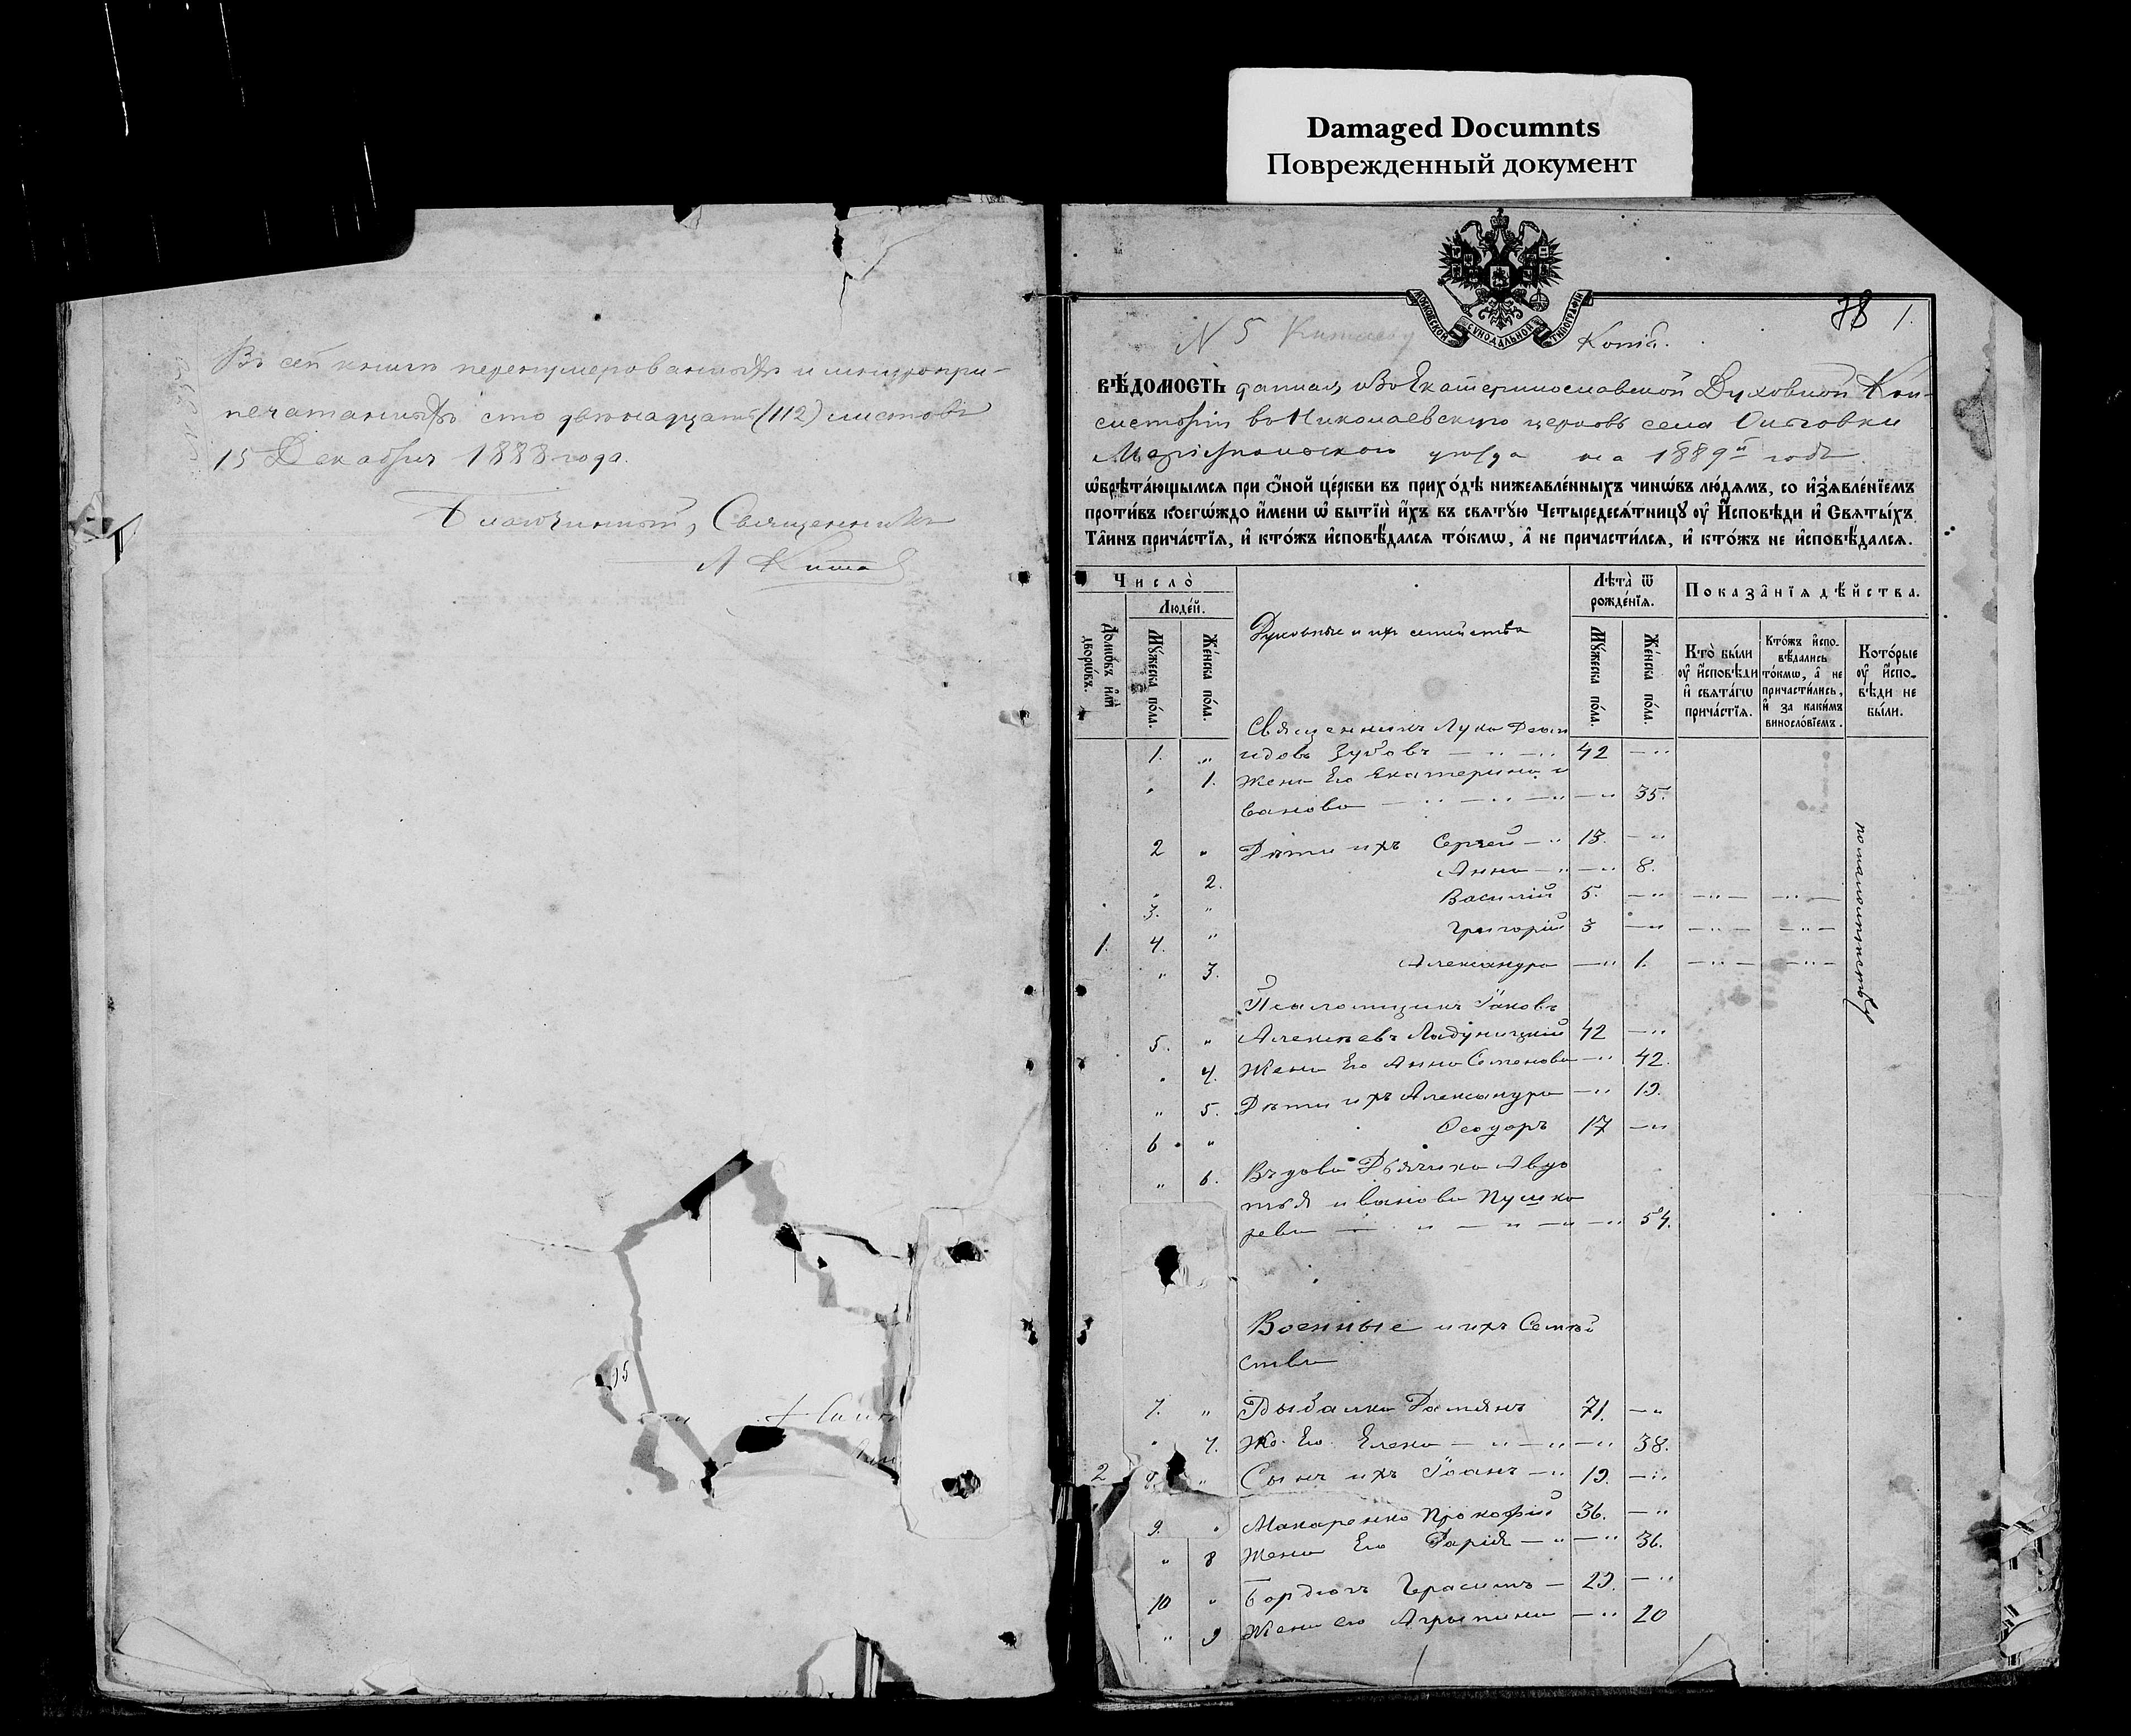 Damaged Documnts
Поврежденный документ
Въ сей книгѣ перенумерованныхъ и шнуропри-
печатанныхъ сто двѣнадцать (112) листовъ
15 Декабря 1888 года.
Благочинный, Священникъ
МОСКОВСКОЙ СѴНОДАЛЬНОЙ ТИПОГРАФІИ
78 1.
N 5 Копія.
ВѢ́ДОМОСТЬ данная изъ Екатеринославской Духовной Кон-
систоріи въ Николаевскую церковь села Ольговки
Маріупольскаго уѣзда на 1889й годъ
ѡ҆брѣта́ющымсѧ при ѻ҆́ной це́ркви въ прихо́дѣ нижеѧвле́нныхъ чинѡ́въ лю́демъ, со и҆з̾ѧвле́нїемъ
проти́въ коегѡ́ждо и҆́мени ѡ҆ бытїѝ и҆́хъ въ свѧтꙋ́ю Четыредесѧ́тницꙋ ᲂу҆ И҆сповѣ́ди и҆ Свѧты́хъ
Та́инъ прича́стїѧ, и҆ кто́жъ и҆сповѣ́далсѧ то́кмѡ, а҆ не причасти́лсѧ, и҆ кто́жъ не и҆сповѣ́далсѧ.
Число̀
Домѡ́въ и҆лѝ дворѡ́въ.
Люде́й.
Мꙋ́жеска по́ла.
Же́нска по́ла.
Духовные и ихъ семейства
Лѣ́та ѿ рожде́нїѧ.
Мꙋ́жеска по́ла.
Же́нска по́ла.
Показа̑нїѧ дѣ́йства.
Кто̀ бы́ли ᲂу҆ и҆сповѣ́ди и҆ свѧта́гѡ прича́стїѧ.
Кто́жъ и҆спо-вѣ́дались то́кмѡ, а҆ не причасти́лись, и҆ за каки́мъ винослѡ́вїемъ.
Кото́рые ᲂу҆ и҆спо-вѣ́ди не бы́ли.
Священникъ Лука Деом
1. „ идовъ Зубовъ — „ — „ 42 — „
„ 1. Жена Его Екатерина И
ванова — „ — „ — „ — „ 35.
2 „ Дѣти ихъ Сергей — „ 13. — „
„ 2. Анна — „ — „ 8.
3. „ Василій 5. — „ — „ — — „ —
1. 4. „ Григорій 3 — „ — „ — — „ —
„ 3. Александра — „ 1. — „ — — „ —
по малолѣтству
Псаломщикъ Іаковъ
5. „ Алексѣевъ Ладуницкій 42 — „
„ 4. Жена Его Анна Семенова — „ 42.
„ 5. Дѣти ихъ Александра — „ 19.
6 „ Ѳеодоръ 17 — „
„ 6. Въдова Дьячька Авдо
тья Иванова Пушка
рева — „ — „ — „ — „ 54.
Военные и ихъ Семѣй
ства
7. „ Рыбалко Даміянъ 71. — „
„ 7. Же. Его Елена — „ — „ — „ 38.
2 8. „ Сынъ ихъ Іоанъ — „ 19. — „
9. „ Макаренко Прокофій 36. — „
„ 8 Жена Его Дарія — „ — „ 36.
10 „ Бордюгъ Герасимъ — 29. — „
„ 9 Жена его Агрыпина — „ 20